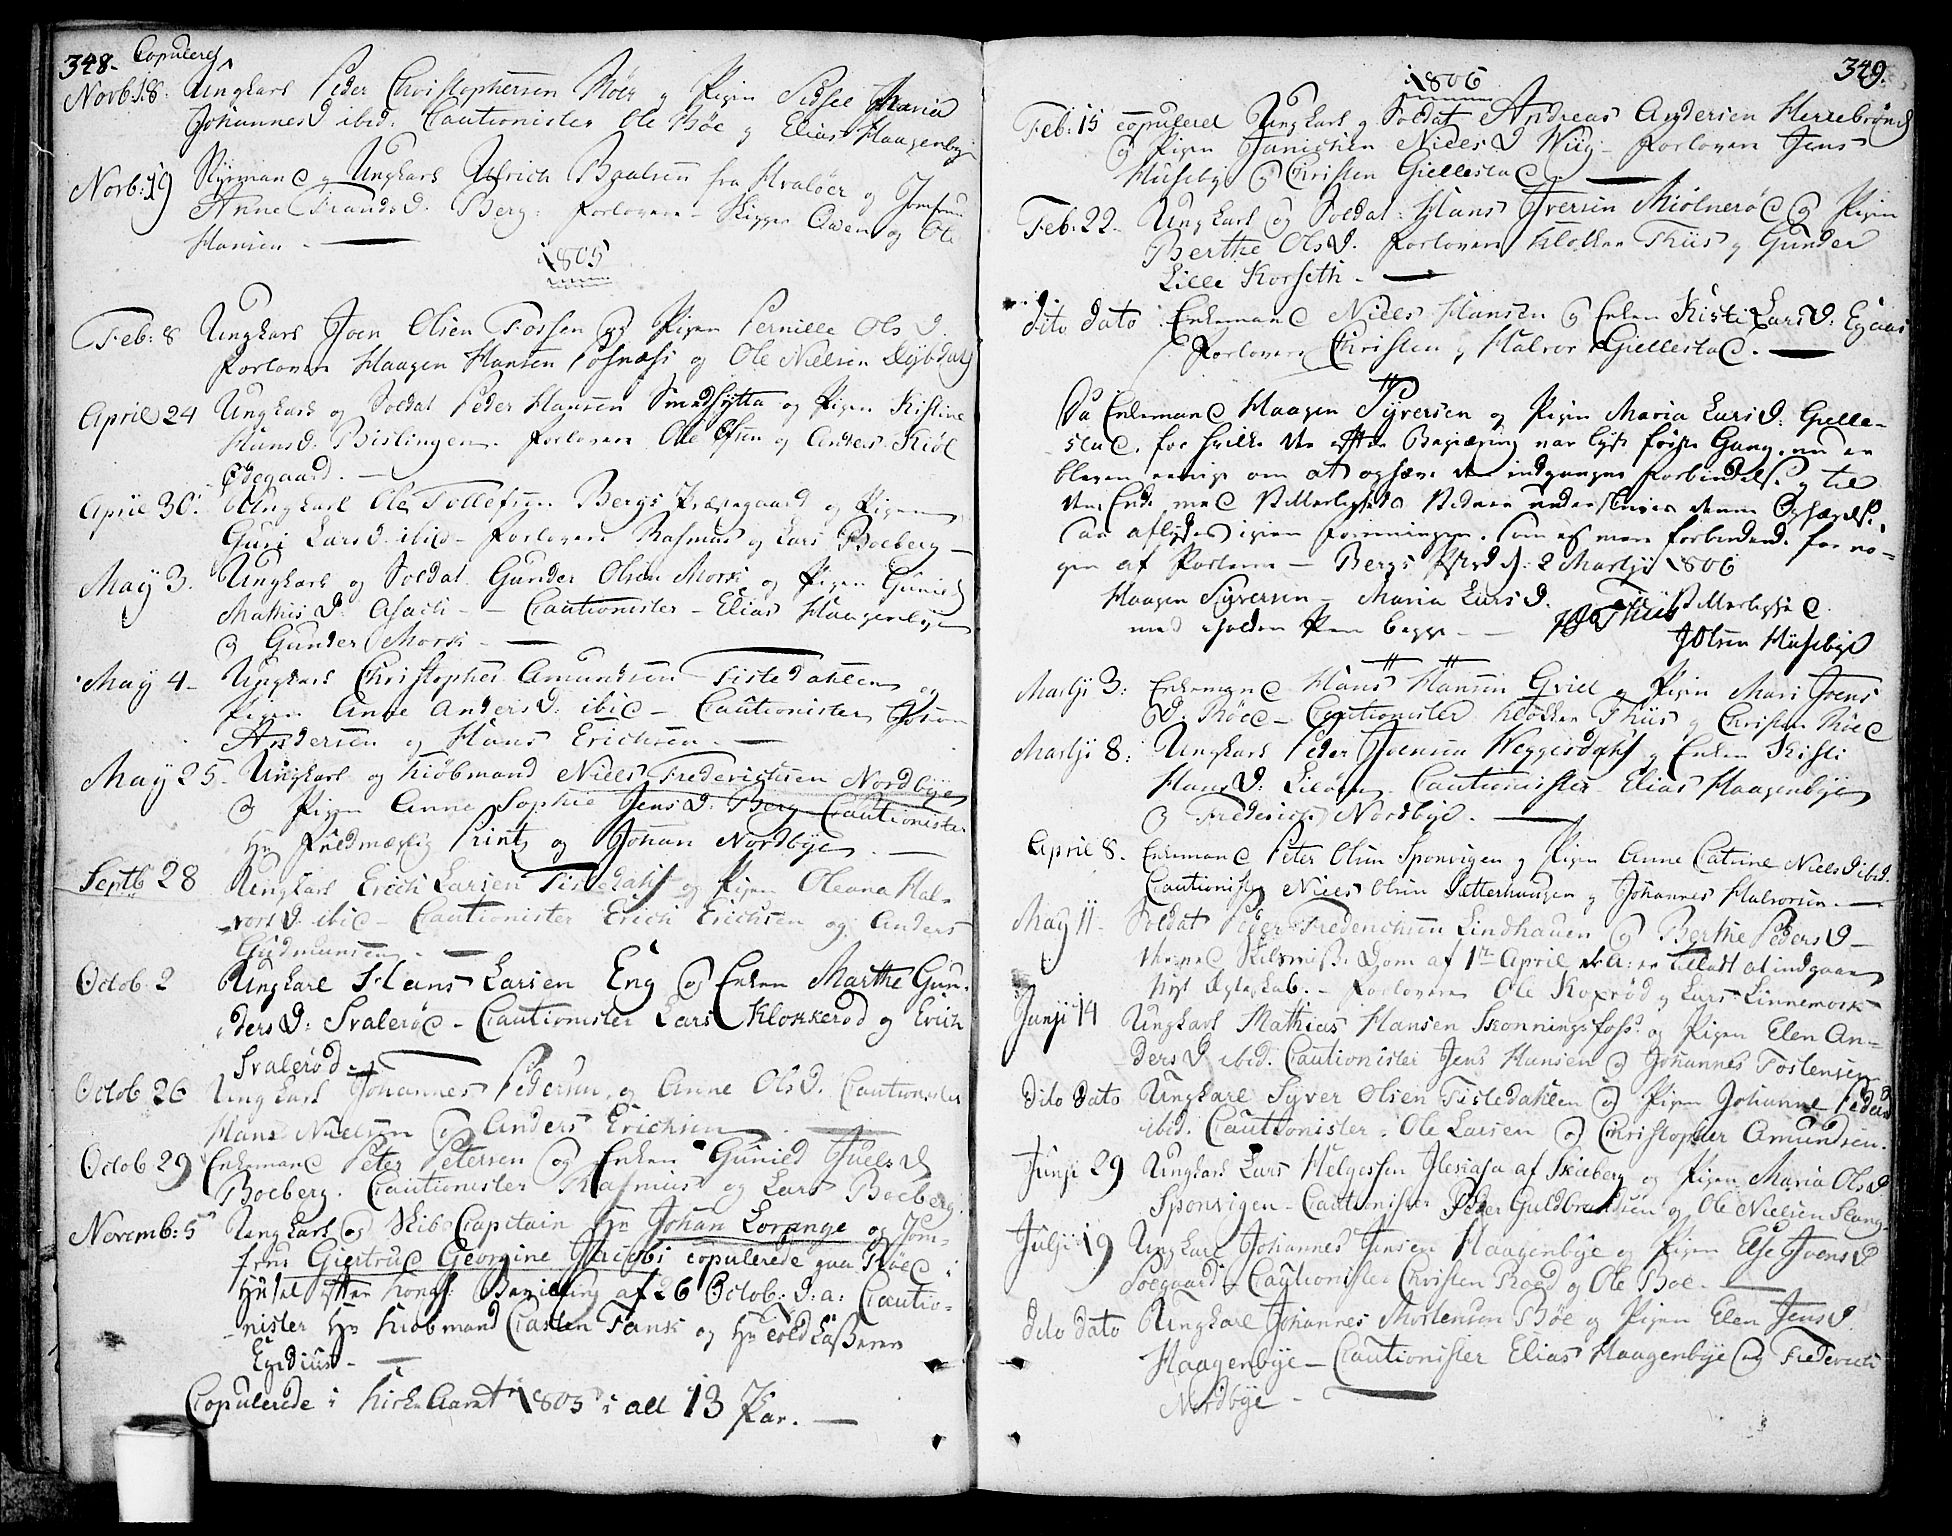 348. Copulerede
Novb. 18. Ungkarl Peder Christophersen Röer og Pigen Sidsel Maria
Johannesd. ibid. Cautionister Ole Böe og Elias Haagenbye
Novb: 19 Styrmand og Ungkarl Ulrich Baalsen fra Hvalöer og Jomfrue
Anne Frandsd. Berg. Forlovere Skipper Owen og Ole
Hansen
1805
Feb: 8 Ungkarl Joen Olsen Fossen og Pigen Pernille Olsd.
Forlovere Haagen Hansen Posnæss og Ole Nielsen Dÿbdahl
April 24 Ungkarl og Soldat Peder Hansen Smedhÿtta og Pigen Kistine
Hansd. Bislingen. Forlovere Ole og Anders Kiöl
Ödegaard.
April 30. Ungkarl Ole Tollefsen Bergs Præstegaard og Pigen
Guri Larsd. ibid - Forlovere Rasmus og Lars Boeberg
May 3. Ungkarl og Soldat Gunder Olsen Mork og Pigen Gunild
Mathisd. Asack - Cautionister - Elias Haagenbye
og Gunder Mork
May 4 Ungkarl Christopher Amundsen Tistedahlen og
Pigen Anne Andersd. ibid - Cautionister
Andersen og Hans Erichsen.
May 25 Ungkarl og Kiöbmand Niels Frederichsen Nordbye
og Pigen Anne Sophie Jensd. Berg Cautionister
Hr Fuldmægtig Printz og Johan Nordbye
Septb 28 Ungkarl Erich Larsen Tistedahl og Pigen Oleana Hal-
vorsd. ibid - Cautionister Erich Erichsen og Anders
Gudmunsen
Octob. 2 Ungkarl Hans Larsen Eng og Enken Marthe Gun-
dersd: Svaleröd - Cautionister Lars Klokkeröd og Erich
Svaleröd
Octob 26 Ungkarl Johannes Pedersen og Anne Olsd. Cautionister
Hans Nielsen og Anders Erichsen
Octob 29 Enkemand Peter Petersen og Enken Gunild Juelsd
Boeberg. Cautionister Rasmus og Lars Boeberg.
Novemb: 5 Ungkarl og Skibs Capitain Hr Johan Lorange og Jom-
frue Giertrud Georgine Jacobi copulerede paa Röed i
Huset efter Kongl: Bevilling af 26 Octob: d: a: Cautio-
nister Hr Kiöbmand Carsten Tank og Hr Told Casserer
Egidius
Copulerede i Kirke Aaret 1805 i alt 13 Par.
349.
1806
Feb: 15 copuleret Ungkarl og Soldat Andreas Andersen Herrebrönd
og Pigen Janichen Nielsd Wiig - Forlovere Jens
Huseby og Christen Giellestad
Feb: 22 - Ungkarl og Soldat Hans Iversen Miölneröd og Pigen
Berthe Olsd. Forlovere Klokker Thiis og Gunder
Lille Korseth
Dito Dato Enkemand Niels Hansen og Enken Kisti Larsd: Egaas
Forlovere Christen og Halvor Giellestad.
Da Enkemand Haagen Syversen og Pigen Maria Larsd. Gjelle-
stad, for hvilke der efter Begiæring var lyst förste Gang, nu er
bleven eenige om at ophæve den indgangne Forbindelse, og til
den Ende med Vitterligheds Vidner underskriver denne Ophævelse,
saa aflyses igien Foreningen, som ej mere forbindende for no-
gen af Parterne - Bergs Præstegd. d: 2 Martji 1806
Haagen Syversen - Maria Larsd. Til Vitterlighed
med holden Pen begge - Thiis
J Olsen Husebye
Martji 3: Enkemand Hans Hansen Qviel og Pigen Mari Joens
d. Röed - Cautionister Klokker Thiis og Christen Röed
Martji 8: Ungkarl Peder Joensen Weggersdahl og Enken Kisti
Hansd: Liröen - Cautionister Elias Haagenbye
og Frederich Nordbye.
April 8. Enkemand Peter Olsen Sponvigen og Pigen Anne Catrine Nielsd ibid.
Cautionister Niels Olsen Sætterhaugen og Johannes Halvorsen.
May 11 - Soldat Peder Frederichsen Lindhauen og Berthe Pedersd -
ved Skilsmisse Dom af 1te April d. a: er tilladt at indgaae
nyt Ægteskab. - Forlovere Ole Koxröd og Lars Linnemork
Junji 14 Ungkarl Mathias Hansen Skonningsfoss og Pigen Elen An-
dersd ibid. Cautionister Jens Hansen og Johannes Tostensen
Dito Dato Ungkarl Syver Olsen Tistedahlen og Pigen Johanne Pedersd
ibid. Cautionister. Ole Larsen og Christopher Amundsen.
Junji 29 Ungkarl Lars Helgessen af Skieberg og Pigen Maria Olsd
Sponvigen - Cautionister Peder Guldbrandsen og Ole Nielsen Slang
Julji 19 Ungkarl Johannes Jensen Haagenbye og Pigen Else Joensd
Soegaard - Cautionister Christen Roed og Ole Boe.
Dito Dato Ungkarl Johannes Mortensen Böe og Pigen Elen Jensd
Haagenbye - Cautionister Elias Haagenbye og Frederich
Nordbye -